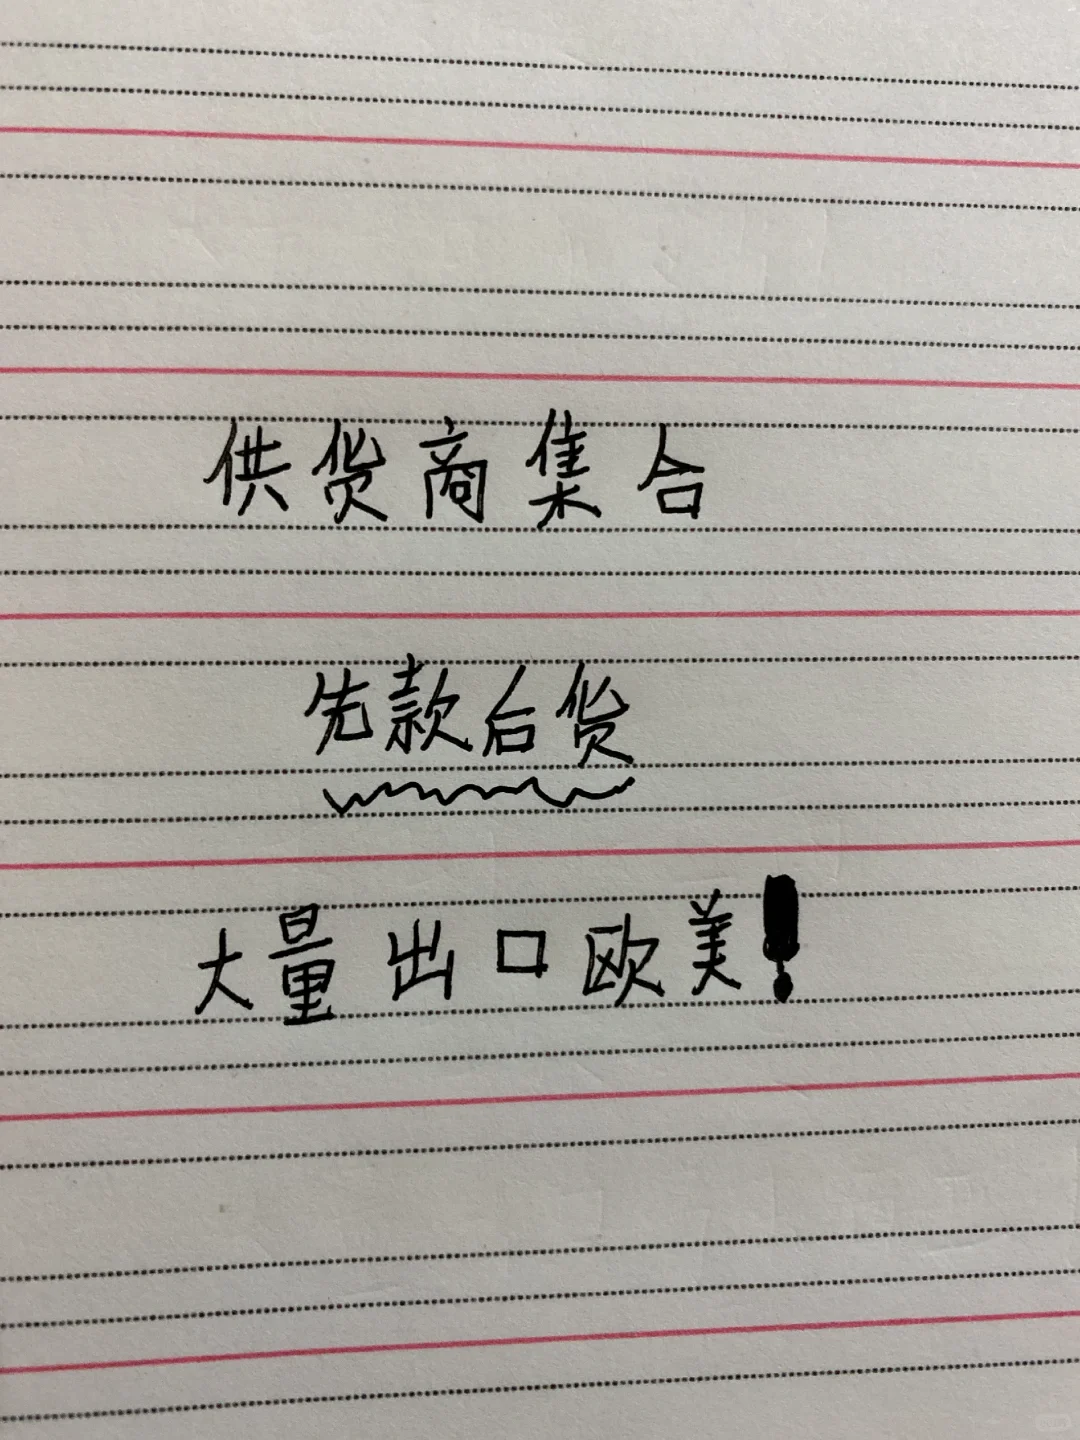 供货商集合
先款后货
大量出口欧美！